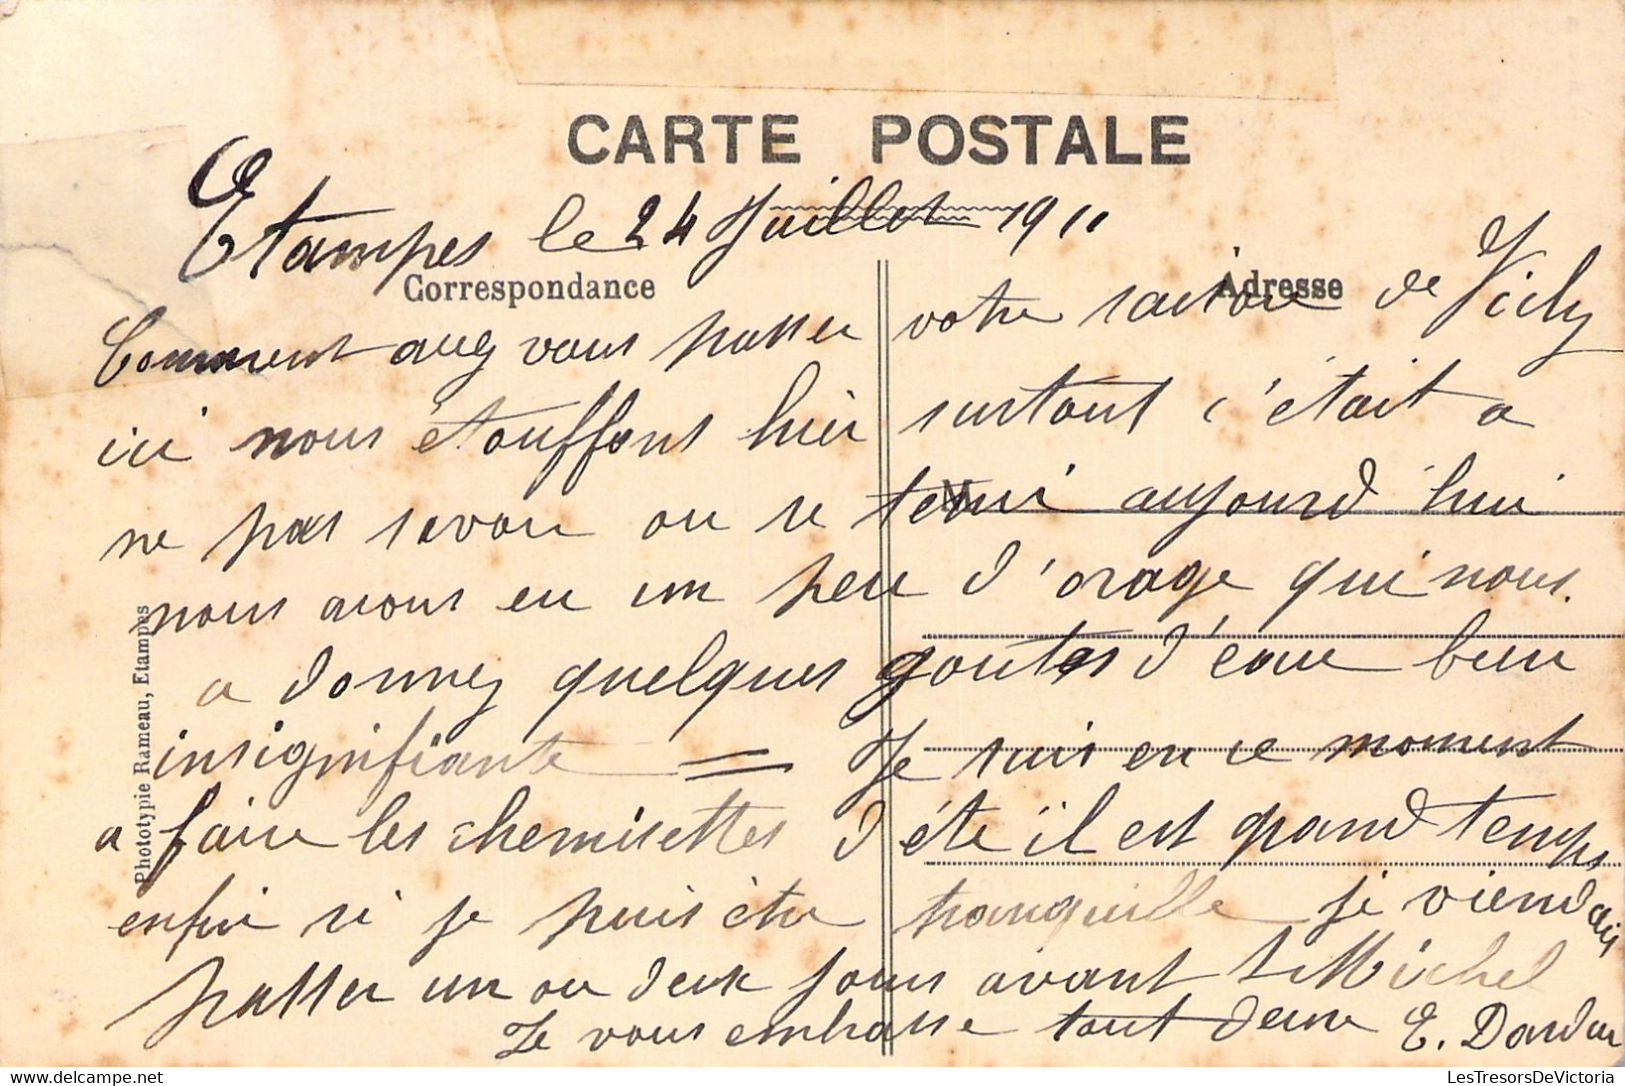 CARTE POSTALE
Etampes le 24 Juillet 1911
Correspondance
Adresse
Comment avez vous passer votre saison de Vichy
ici nous étouffons hier surtout c'était a
ne pas savoir ou se tenir aujourd'hui
nous avons eu un peu d'orage qui nous
a donnez quelques goutes d'eau bien
insignifiante = Je suis en ce moment
a faire les chemisettes d'été il est grand temps
enfin si je puis être tranquille je viendrais
passer un ou deux jours avant St Michel
Je vous embrasse tout deux E. Dardan
Phototypie Rameau, Etampes
LesTresorsDeVictoria
LesTresorsDeVictoria.com